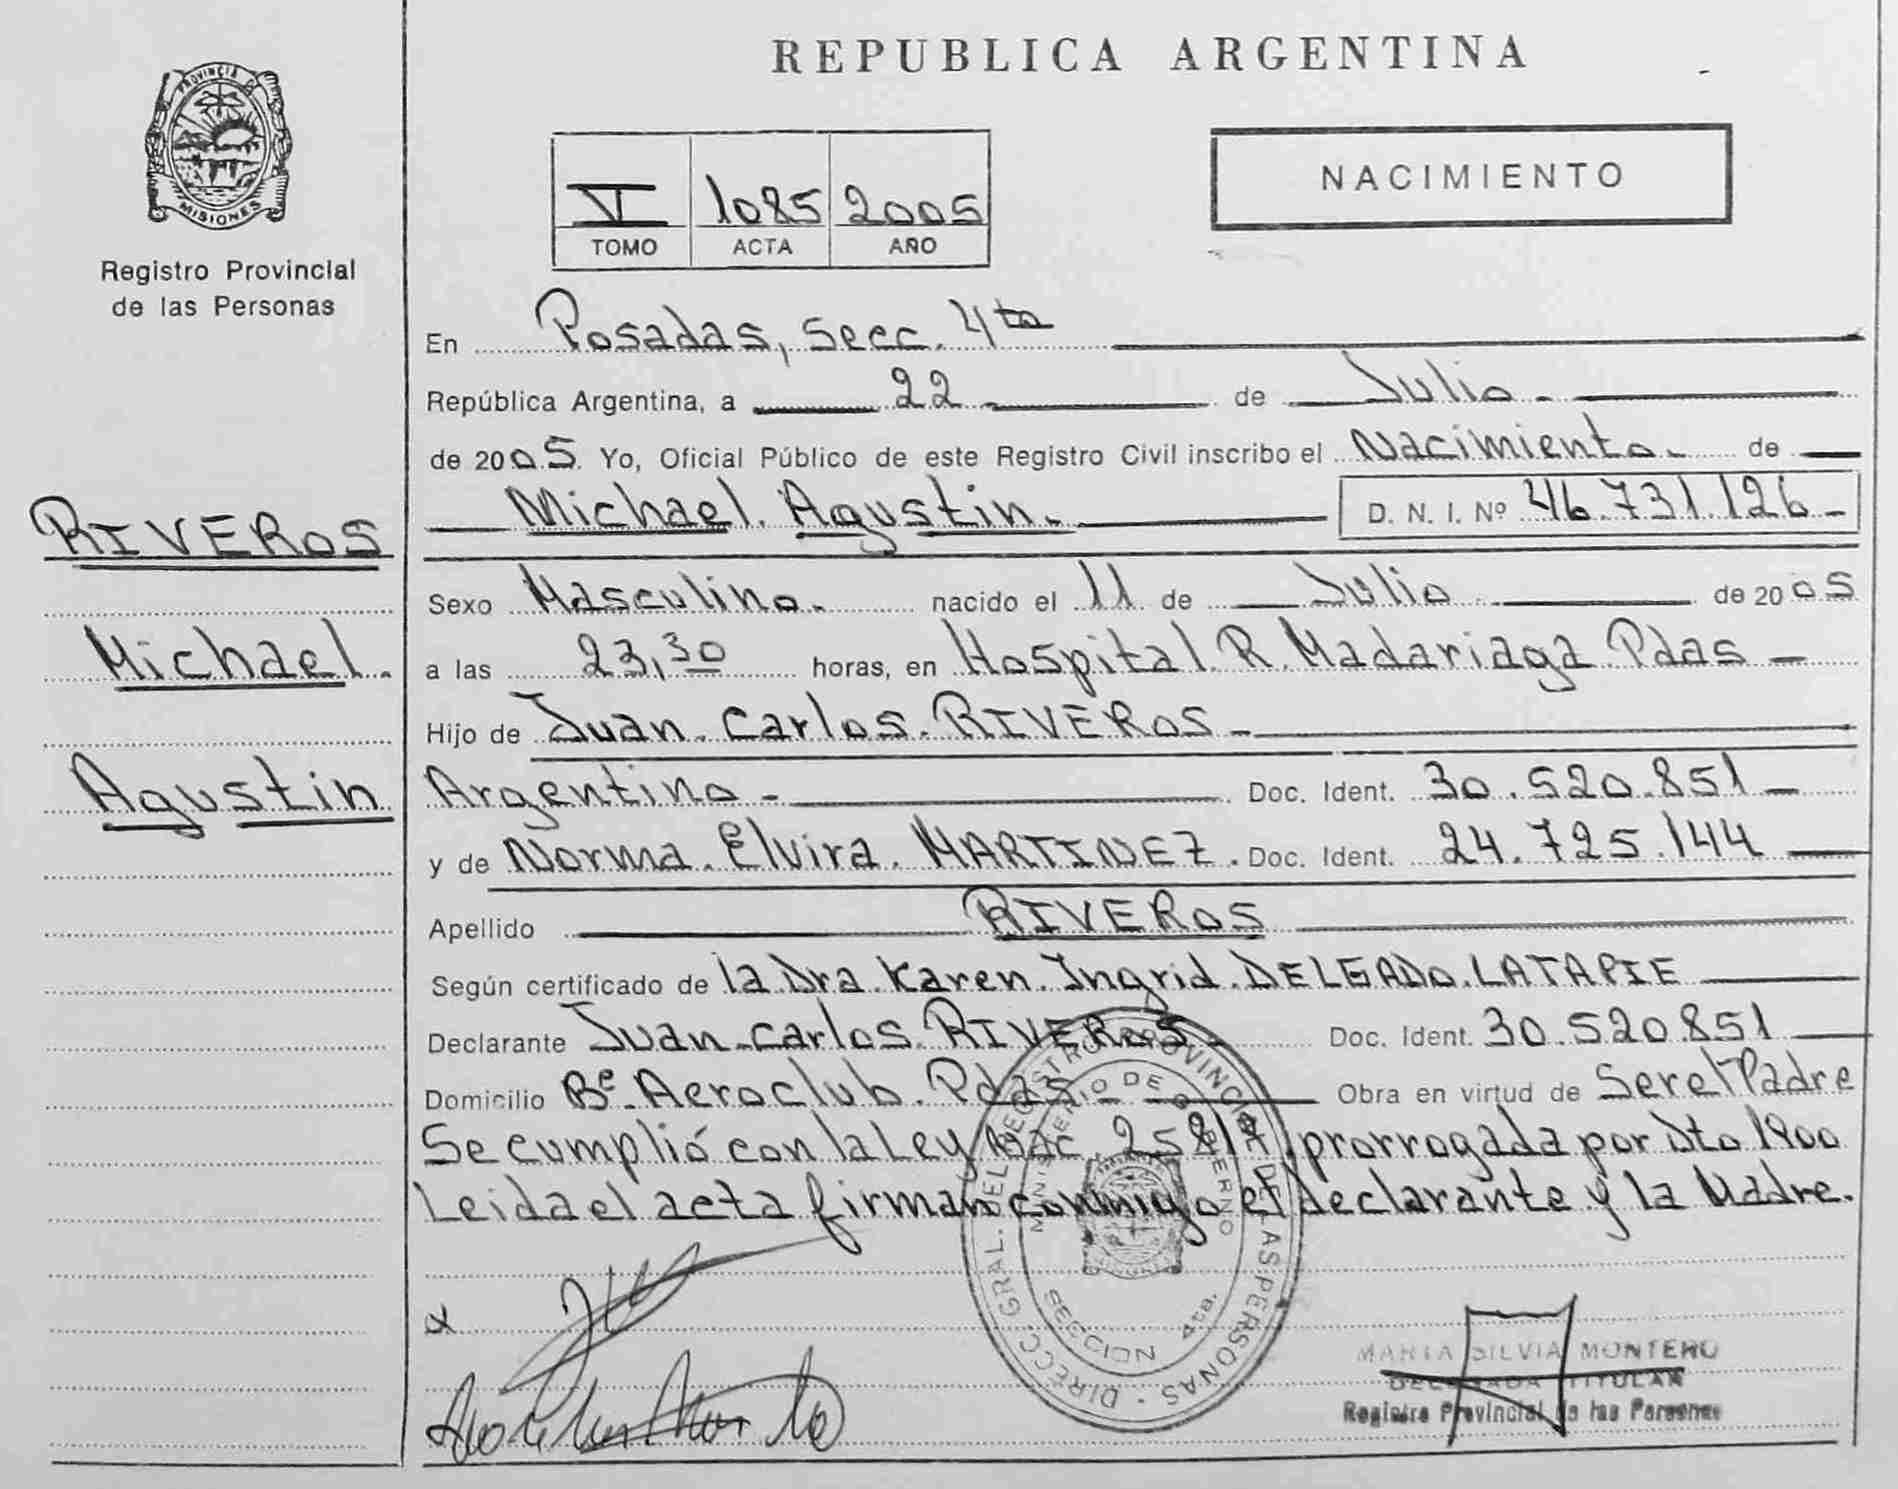 REPUBLICA ARGENTINA
PROVINCIA DE
MISIONES
Registro Provincial
de las Personas
NACIMIENTO
VI 1085 2005
TOMO ACTA AÑO
En Posadas, Secc. 4ta
República Argentina, a 22 de Julio
de 2005. Yo, Oficial Público de este Registro Civil inscribo el Nacimiento de
Michael Agustin. D. N. I. Nº 46.731.126
RIVEROS
Michael
Agustin
Sexo Masculino. nacido el 11 de Julio de 2005
a las 23,30 horas, en Hospital R. Madariaga Pdas
Hijo de Juan Carlos RIVEROS
Argentino Doc. Ident. 30.520.851
y de Norma Elvira MARTINEZ. Doc. Ident. 24.725.144
Apellido RIVEROS
Según certificado de la Dra Karen Ingrid DELGADO LATAPIE
Declarante Juan Carlos RIVEROS Doc. Ident. 30.520.851
Domicilio Bº Aeroclub. Pdas. Obra en virtud de Ser el Padre
Se cumplió con la Ley Nac. 25819 prorrogada por Dto 1900
Leida el acta firman conmigo el declarante y la Madre.
DIRECC. GRAL. DEL REGISTRO PROVINCIAL DE LAS PERSONAS
MINISTERIO DE GOBIERNO
SECCION 4ta.
x
MARIA SILVIA MONTERO
DELEGADA TITULAR
Registro Provincial de las Personas